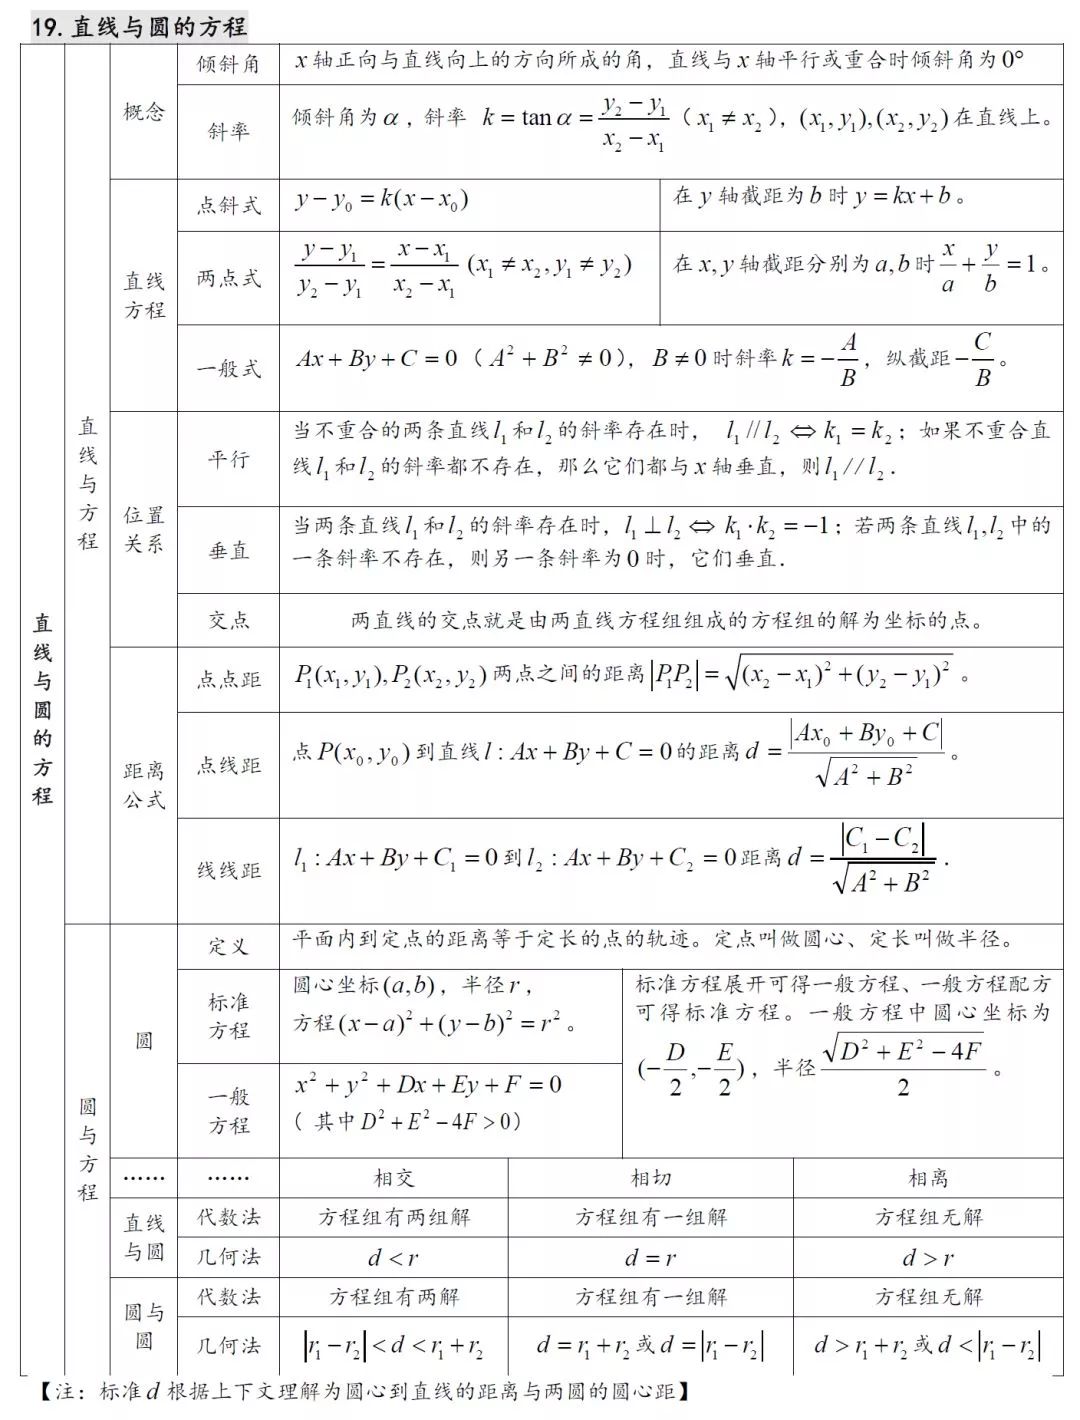 19.直线与圆的方程
直线与圆的方程
直线与方程
概念
倾斜角
x 轴正向与直线向上的方向所成的角，直线与 x 轴平行或重合时倾斜角为 0°
斜率
倾斜角为 α ，斜率 k = tan α = (y₂ − y₁)/(x₂ − x₁)（ x₁ ≠ x₂ ），(x₁, y₁),(x₂, y₂) 在直线上。
直线方程
点斜式
y − y₀ = k(x − x₀)
在 y 轴截距为 b 时 y = kx + b 。
两点式
(y − y₁)/(y₂ − y₁) = (x − x₁)/(x₂ − x₁) (x₁ ≠ x₂, y₁ ≠ y₂)
在 x, y 轴截距分别为 a,b 时 x/a + y/b = 1 。
一般式
Ax + By + C = 0（ A² + B² ≠ 0），B ≠ 0 时斜率 k = −A/B ，纵截距 −C/B 。
位置关系
平行
当不重合的两条直线 l₁ 和 l₂ 的斜率存在时， l₁ // l₂ ⇔ k₁ = k₂ ；如果不重合直
线 l₁ 和 l₂ 的斜率都不存在，那么它们都与 x 轴垂直，则 l₁ // l₂ .
垂直
当两条直线 l₁ 和 l₂ 的斜率存在时，l₁ ⊥ l₂ ⇔ k₁ · k₂ = −1；若两条直线 l₁, l₂ 中的
一条斜率不存在，则另一条斜率为 0 时，它们垂直.
交点
两直线的交点就是由两直线方程组组成的方程组的解为坐标的点。
距离公式
点点距
P₁(x₁, y₁), P₂(x₂, y₂) 两点之间的距离 |P₁P₂| = √((x₂ − x₁)² + (y₂ − y₁)²) 。
点线距
点 P(x₀, y₀) 到直线 l : Ax + By + C = 0 的距离 d = |Ax₀ + By₀ + C|/√(A² + B²) 。
线线距
l₁ : Ax + By + C₁ = 0 到 l₂ : Ax + By + C₂ = 0 距离 d = |C₁ − C₂|/√(A² + B²) .
圆与方程
圆
定义
平面内到定点的距离等于定长的点的轨迹。定点叫做圆心、定长叫做半径。
标准方程
圆心坐标 (a,b) ，半径 r ，
方程 (x − a)² + (y − b)² = r² 。
标准方程展开可得一般方程、一般方程配方
可得标准方程。一般方程中圆心坐标为
(−D/2, −E/2) ，半径 √(D² + E² − 4F)/2 。
一般方程
x² + y² + Dx + Ey + F = 0
（ 其中 D² + E² − 4F > 0）
…… …… 相交 相切 相离
直线与圆
代数法 方程组有两组解 方程组有一组解 方程组无解
几何法 d < r d = r d > r
圆与圆
代数法 方程组有两解 方程组有一组解 方程组无解
几何法 |r₁ − r₂| < d < r₁ + r₂ d = r₁ + r₂ 或 d = |r₁ − r₂| d > r₁ + r₂ 或 d < |r₁ − r₂|
【注：标准 d 根据上下文理解为圆心到直线的距离与两圆的圆心距】